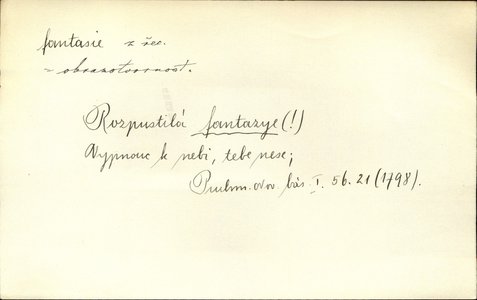 fantasie z řec.
= obrazotvornost.
Rozpustilá fantazye (!)
Vypnouc k nebi, tebe nese;
Puchm. Nov. bás. I. 56. 21 (1798).